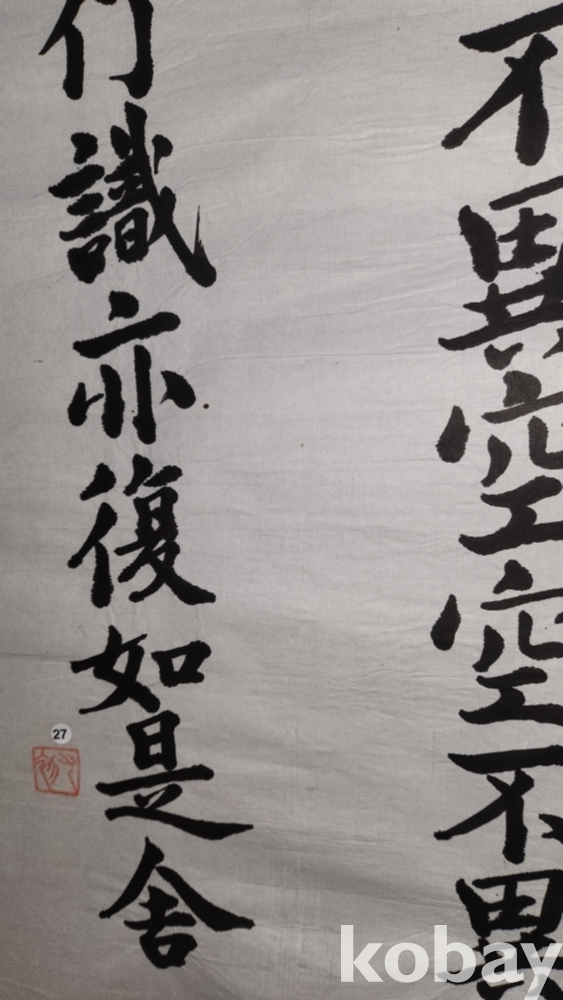 不異空空不異
行識亦復如是舍
27
kobay